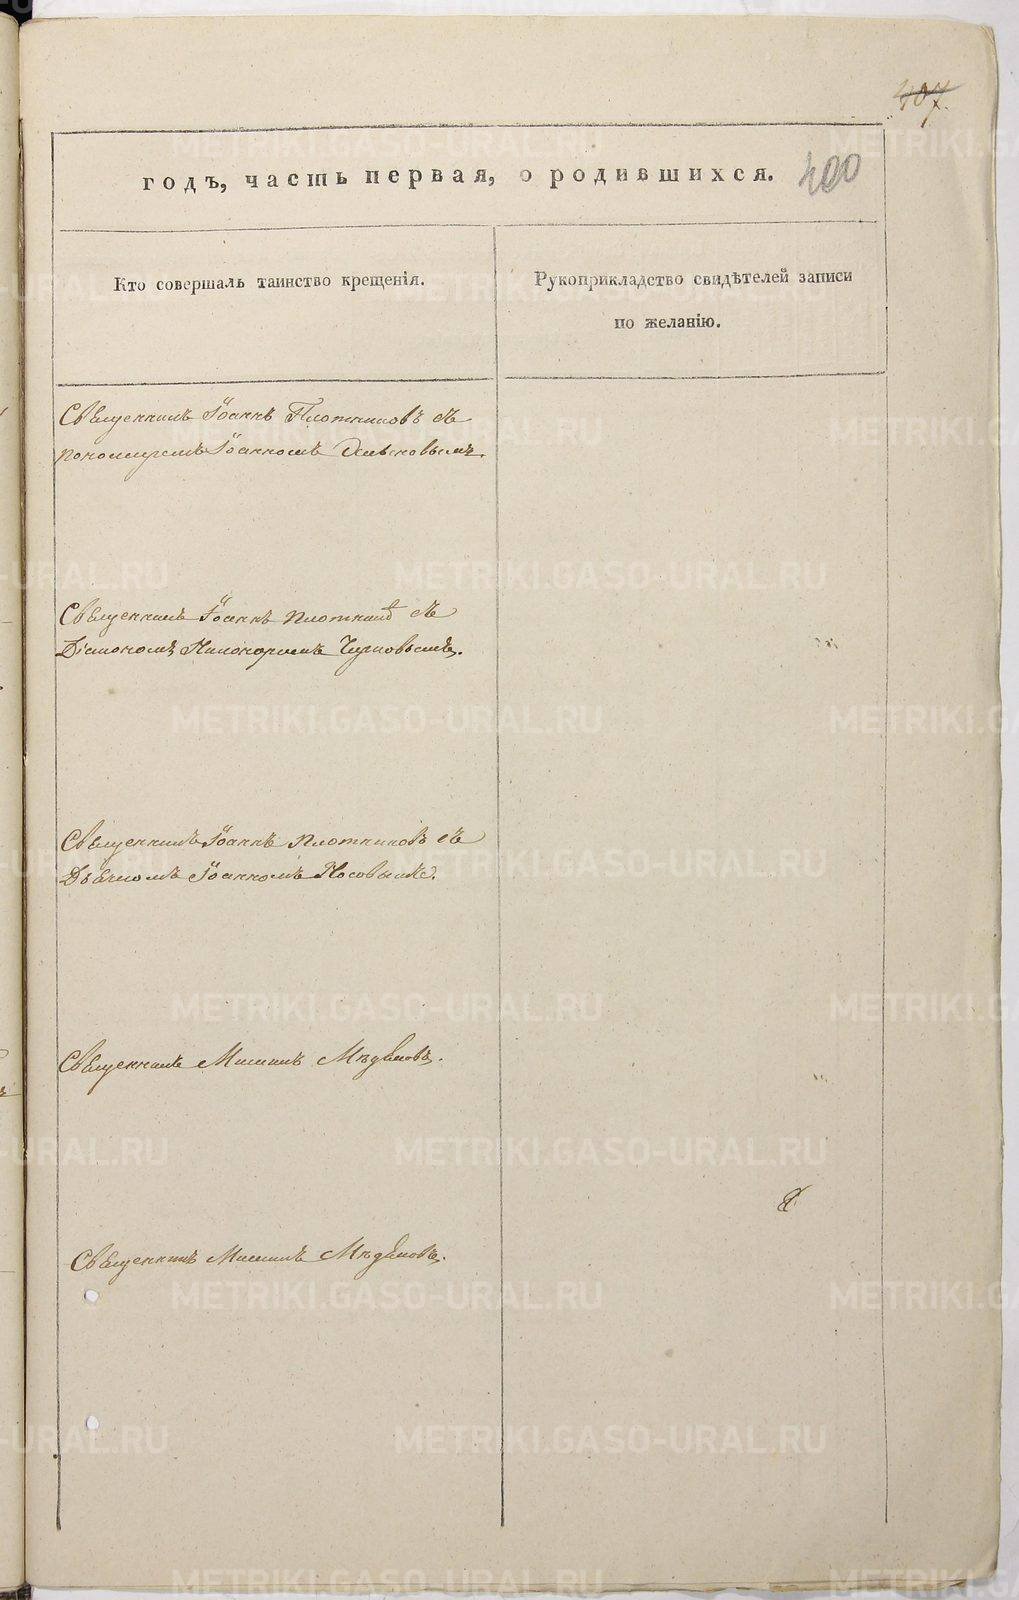 407.
годъ, часть первая, о родившихся. 400
Кто совершалъ таинство крещенія.
Рукоприкладство свидѣтелей записи
по желанію.
Священникъ Іоаннъ Плотниковъ съ
пономаремъ Іоанномъ
Священникъ Іоаннъ Плотник съ
Діакономъ Никаноромъ
Священникъ Іоаннъ Плотниковъ съ
Дьячкомъ Іоанномъ Носовымъ.
Священникъ Мисаилъ Мѣдяковъ.
Священникъ Мисаилъ Мѣдяковъ.
METRIKI.GASO-URAL.RU